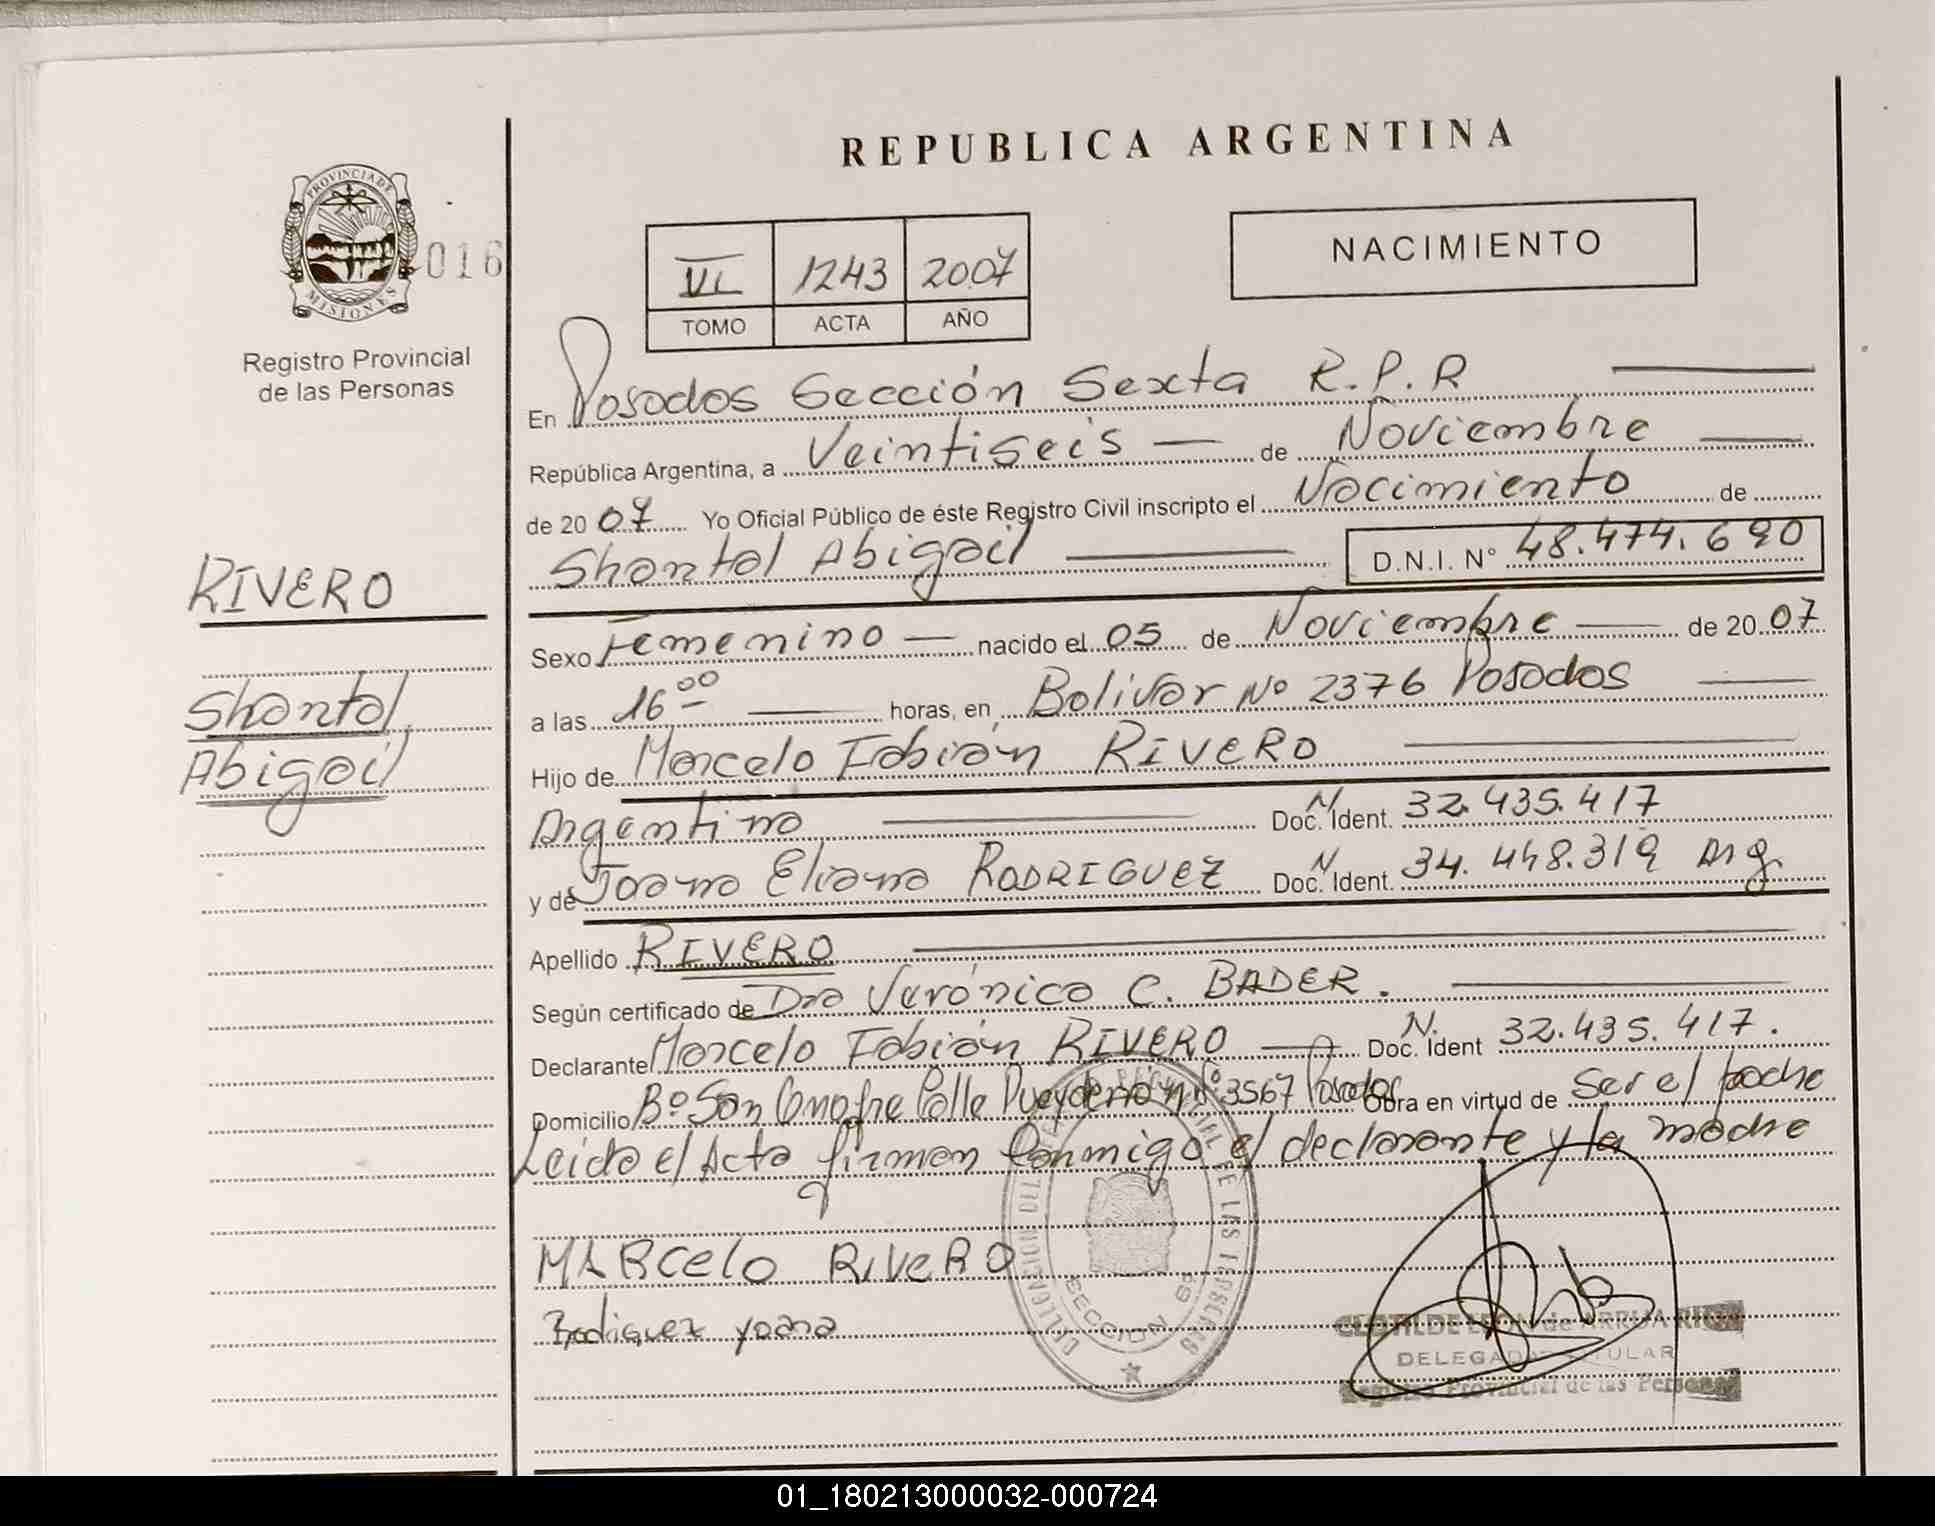 REPUBLICA ARGENTINA
PROVINCIA DE
MISIONES
016
Registro Provincial
de las Personas
VI 1243 2007
TOMO ACTA AÑO
NACIMIENTO
En Posadas Sección Sexta R.P.R
República Argentina, a Veintiseis de Noviembre
de 2007 Yo Oficial Público de éste Registro Civil inscripto el Nacimiento de
Shantal Abigail D.N.I. Nº 48.474.690
RIVERO
Shantal
Abigail
Sexo Femenino nacido el 05 de Noviembre de 2007
a las 16 00 horas, en Bolivar Nº 2376 Posadas
Hijo de Marcelo Fabián RIVERO
Argentino Doc. N. Ident. 32.435.417
y de Joana Eliana RODRIGUEZ Doc. N. Ident. 34.448.319 Arg.
Apellido RIVERO
Según certificado de Dra Verónica C. BADER.
Declarante Marcelo Fabián RIVERO Doc. N. Ident 32.435.417.
Domicilio Bº San Onofre Calle Pueyderro n Nº 3567 Posadas Obra en virtud de Ser el padre
Leída el Acta firman conmigo el declarante y la madre
MARcelo RIVeRO
Rodiguez yoana
SECCION 6ª
CLOTILDE LEON de ARRUA
DELEGADA TITULAR
Registro Provincial de las Personas
01_180213000032-000724